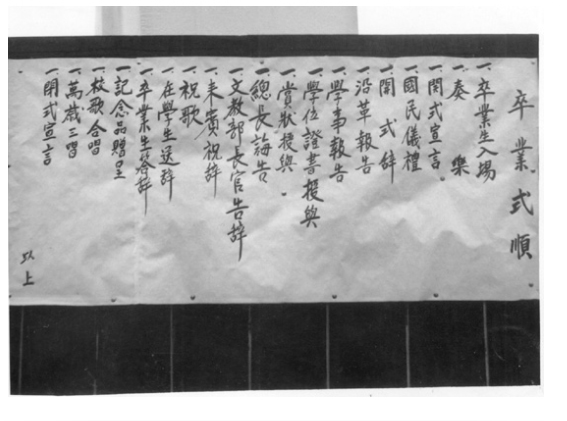 卒業式順
一. 卒業生入場
一. 奏樂
一. 開式宣言
一. 國民儀禮
一. 開式辞
一. 沿革報告
一. 學事報告
一. 學位證書授與
一. 賞狀授與
一. 總長誨告
一. 文教部長官告辞
一. 来賓祝辞
一. 祝歌
一. 在學生送辞
一. 卒業生答辞
一. 記念品贈呈
一. 校歌合唱
一. 萬歲三唱
一. 閉式宣言
以上